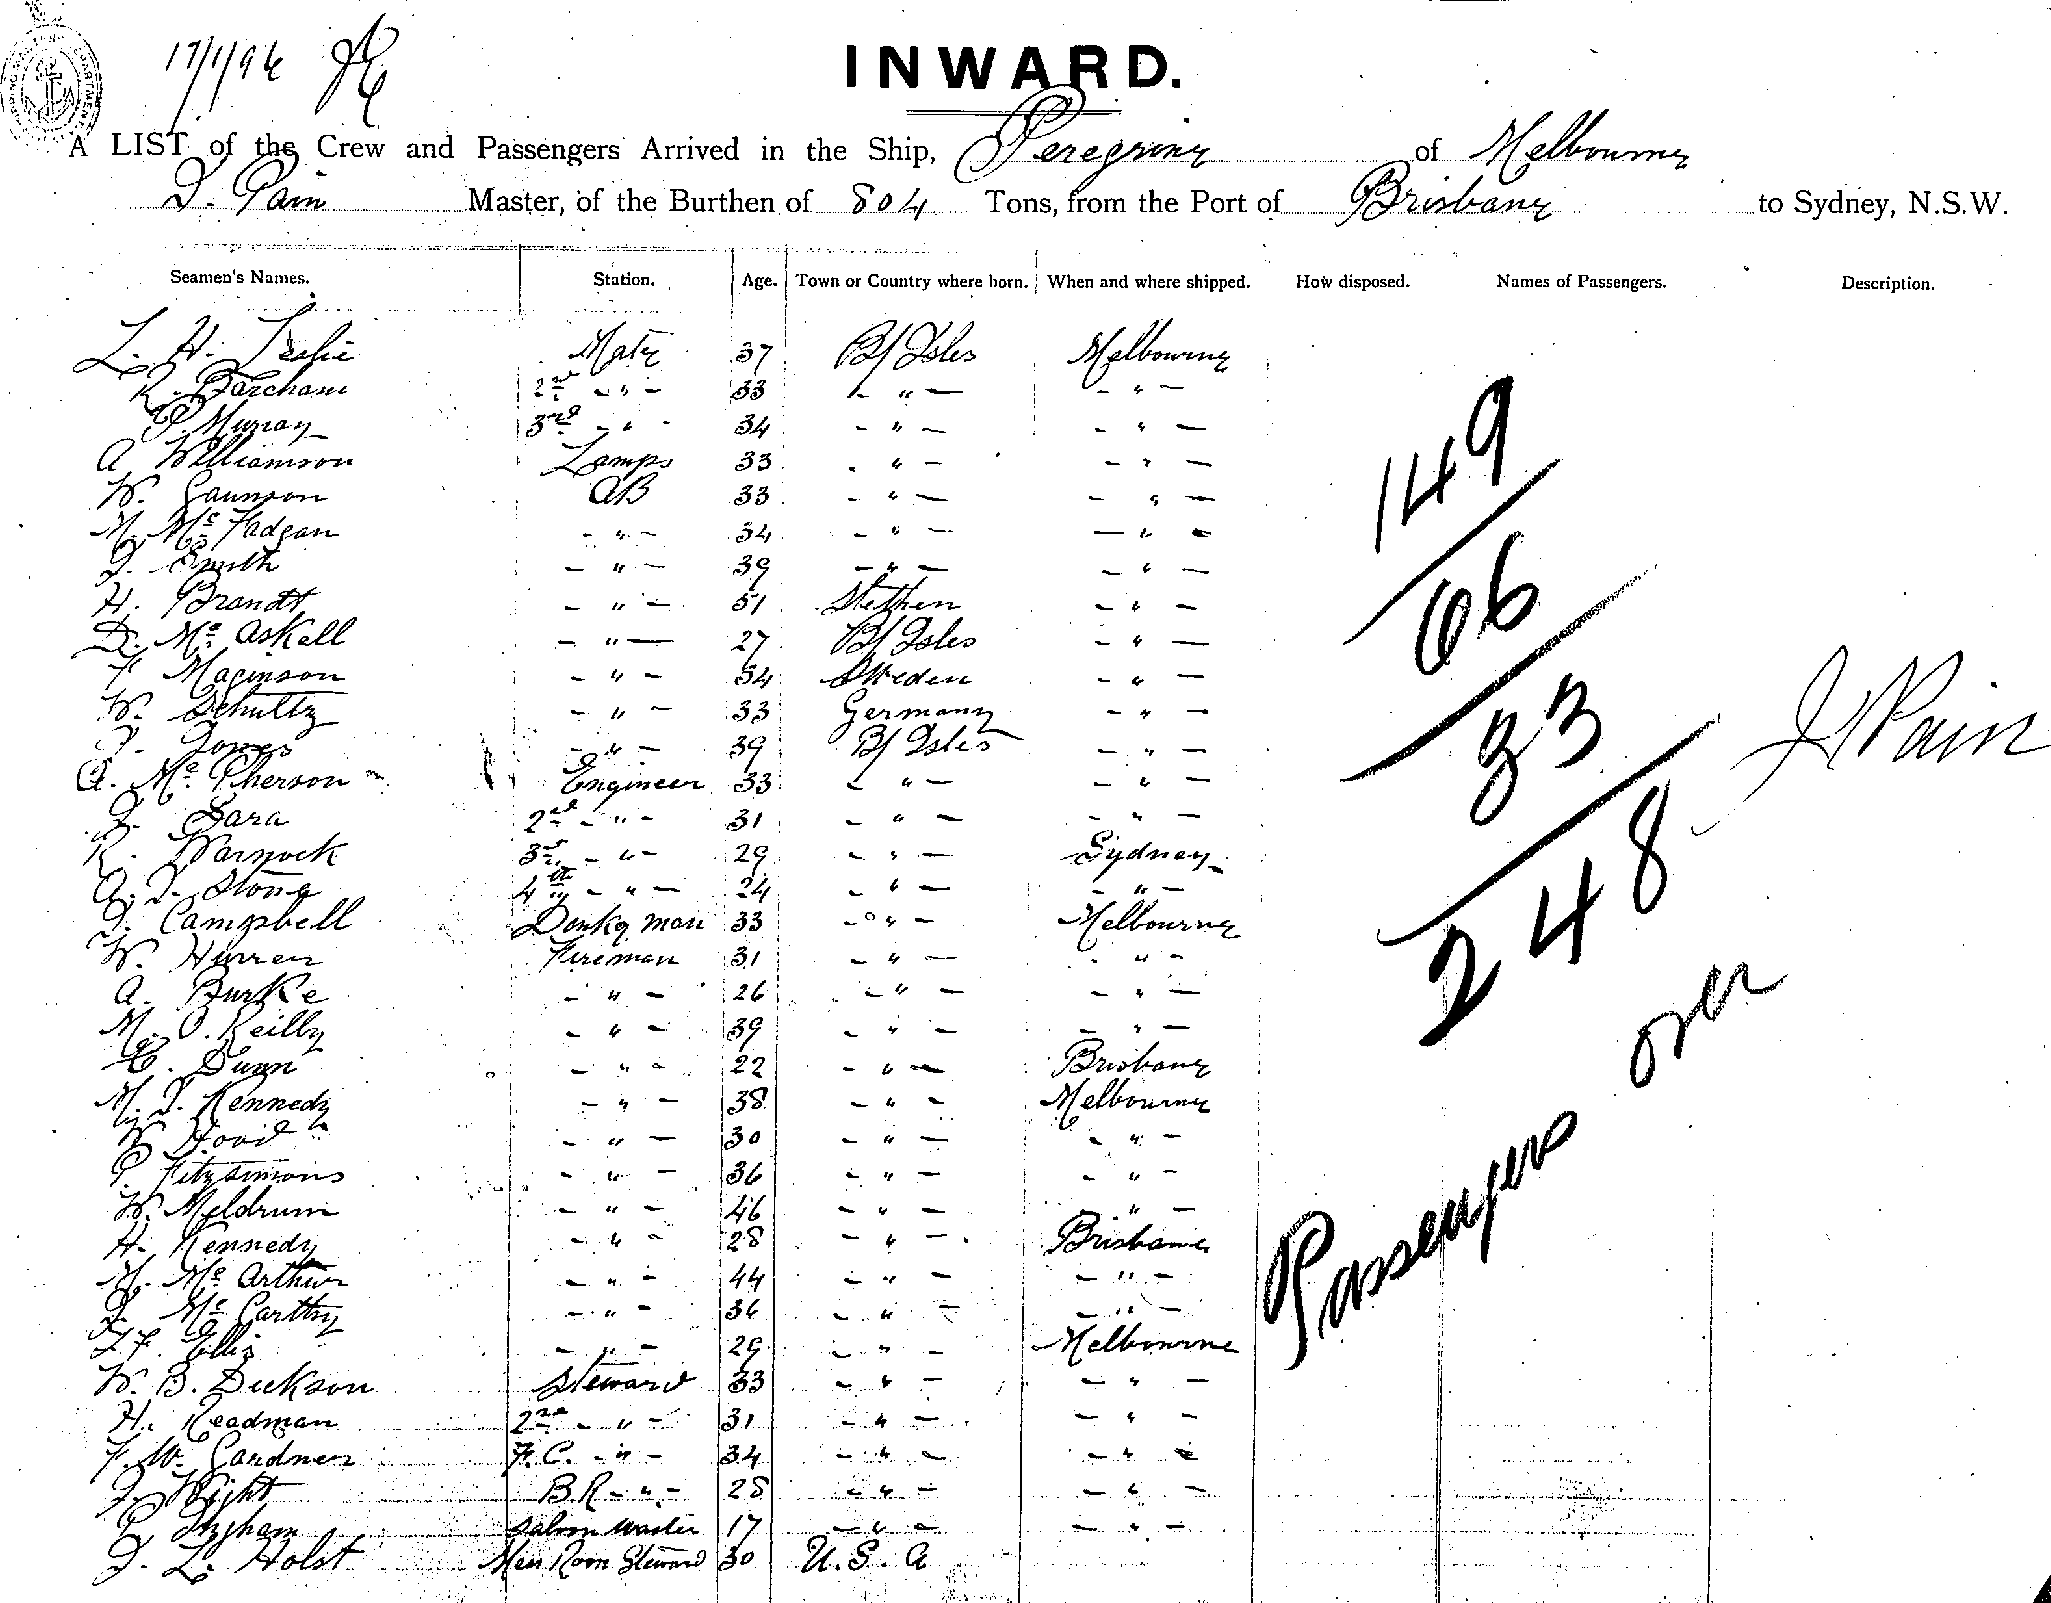 17/1/96
INWARD.
A LIST of the Crew and Passengers Arrived in the Ship, Peregrine of Melbourne
J. Pain Master, of the Burthen of 804 Tons, from the Port of Brisbane to Sydney, N.S.W.
Seamen's Names. Station. Age. Town or Country where born. When and where shipped. How disposed. Names of Passengers. Description.
L. H. Leslie Mate 37 B/ Isles Melbourne
R. Barcham 2nd - " - 33 - " - - " -
Murray 3rd - " - 34 - " - - " -
A Williamson Lamps 33 - " - - " -
W. Gaunson AB 33 - " - - " -
M. Mc Fadgan - " - 34 - " - - " -
J. Smith - " - 39 - " - - " -
H. Brandt - " - 51 Stettien - " -
D. Mc Askell - " - 27 B/ Isles - " -
F. Maginson - " - 34 Sweden - " -
W. Schultz - " - 33 Germany - " -
J. Jones - " - 39 B/ Isles - " -
A. Mc Pherson Engineer 33 - " - - " -
J. Sara 2nd - " - 31 - " - - " -
R. Warnock 3rd - " - 29 - " - Sydney
A. J. Stone 4th - " - 24 - " - - " -
J. Campbell Donkey man 33 - " - Melbourne
W. Hurren Fireman 31 - " - - " -
A. Burke - " - 26 - " - - " -
M. O. Reilly - " - 39 - " - - " -
E. Dunn - " - 22 - " - Brisbane
M. J. Kennedy - " - 38 - " - Melbourne
W Hood - " - 30 - " - - " -
P. Fitzsimons - " - 36 - " - - " -
W. Meldrum - " - 46 - " - - " -
H. Kennedy - " - 28 - " - Brisbane
M. Mc Arthur - " - 44 - " - - " -
J. Mc Carthy - " - 36 - " - - " -
J. F. Ellis - " - 29 - " - Melbourne
W. B. Dickson Steward 33 - " - - " -
H. Readman 2nd - " - 31 - " - - " -
F. W. Gardner F.C. - " - 34 - " - - " -
J. Wight B.R - " - 28 - " - - " -
Ingham Saloon Waiter 17 - " - - " -
J. L. Holst Mess Room Steward 30 U.S.A
149
66
33
248
J Pain
Passengers over